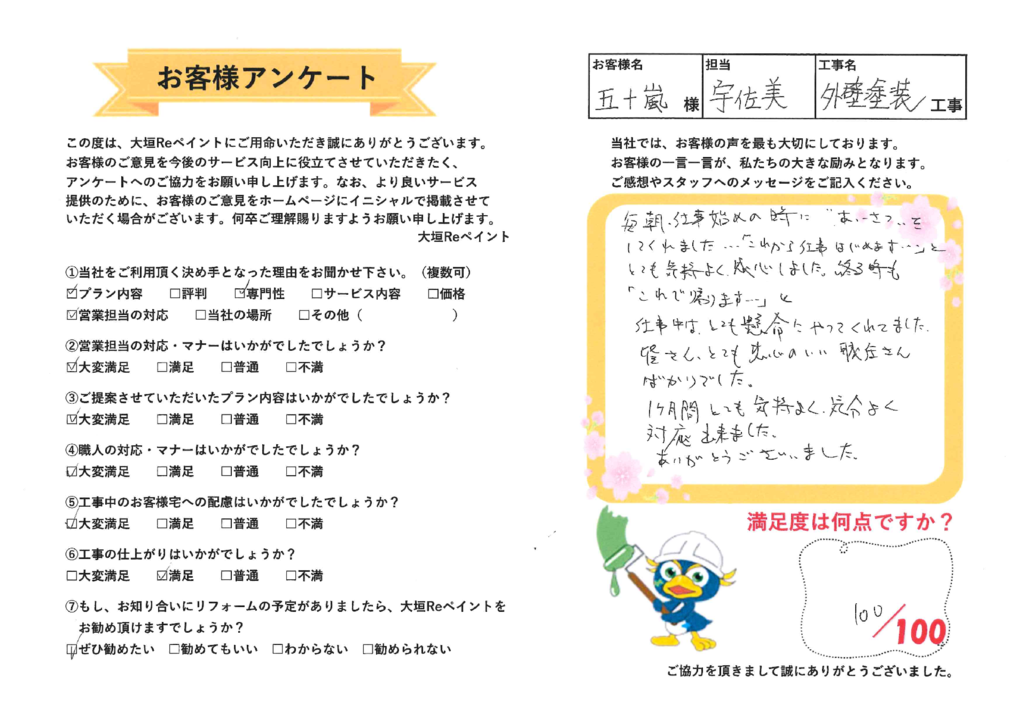 お客様アンケート
この度は、大垣Reペイントにご用命いただき誠にありがとうございます。
お客様のご意見を今後のサービス向上に役立てさせていただきたく、
アンケートへのご協力をお願い申し上げます。なお、より良いサービス
提供のために、お客様のご意見をホームページにイニシャルで掲載させて
いただく場合がございます。何卒ご理解賜りますようお願い申し上げます。
大垣Reペイント
①当社をご利用頂く決め手となった理由をお聞かせ下さい。（複数可）
☑プラン内容 □評判 ☑専門性 □サービス内容 □価格
☑営業担当の対応 □当社の場所 □その他（ ）
②営業担当の対応・マナーはいかがでしたでしょうか？
☑大変満足 □満足 □普通 □不満
③ご提案させていただいたプラン内容はいかがでしたでしょうか？
☑大変満足 □満足 □普通 □不満
④職人の対応・マナーはいかがでしたでしょうか？
☑大変満足 □満足 □普通 □不満
⑤工事中のお客様宅への配慮はいかがでしたでしょうか？
☑大変満足 □満足 □普通 □不満
⑥工事の仕上がりはいかがでしょうか？
□大変満足 ☑満足 □普通 □不満
⑦もし、お知り合いにリフォームの予定がありましたら、大垣Reペイントを
お勧め頂けますでしょうか？
☑ぜひ勧めたい □勧めてもいい □わからない □勧められない
お客様名 担当 工事名
五十嵐 様 宇佐美 外壁塗装 工事
当社では、お客様の声を最も大切にしております。
お客様の一言一言が、私たちの大きな励みとなります。
ご感想やスタッフへのメッセージをご記入ください。
毎朝、仕事始めの時に"あいさつ"を
してくれました…「これから仕事はじめます…」と
とても気持よく感心しました。終る時も
「これで帰ります…」と
仕事中は、とても懸命にやってくれてました。
皆さん、とても感心のいい職人さん
ばかりでした。
1ヶ月間とても気持よく、気分よく
対応出来ました。
ありがとうございました。
満足度は何点ですか？
100/100
ご協力を頂きまして誠にありがとうございました。